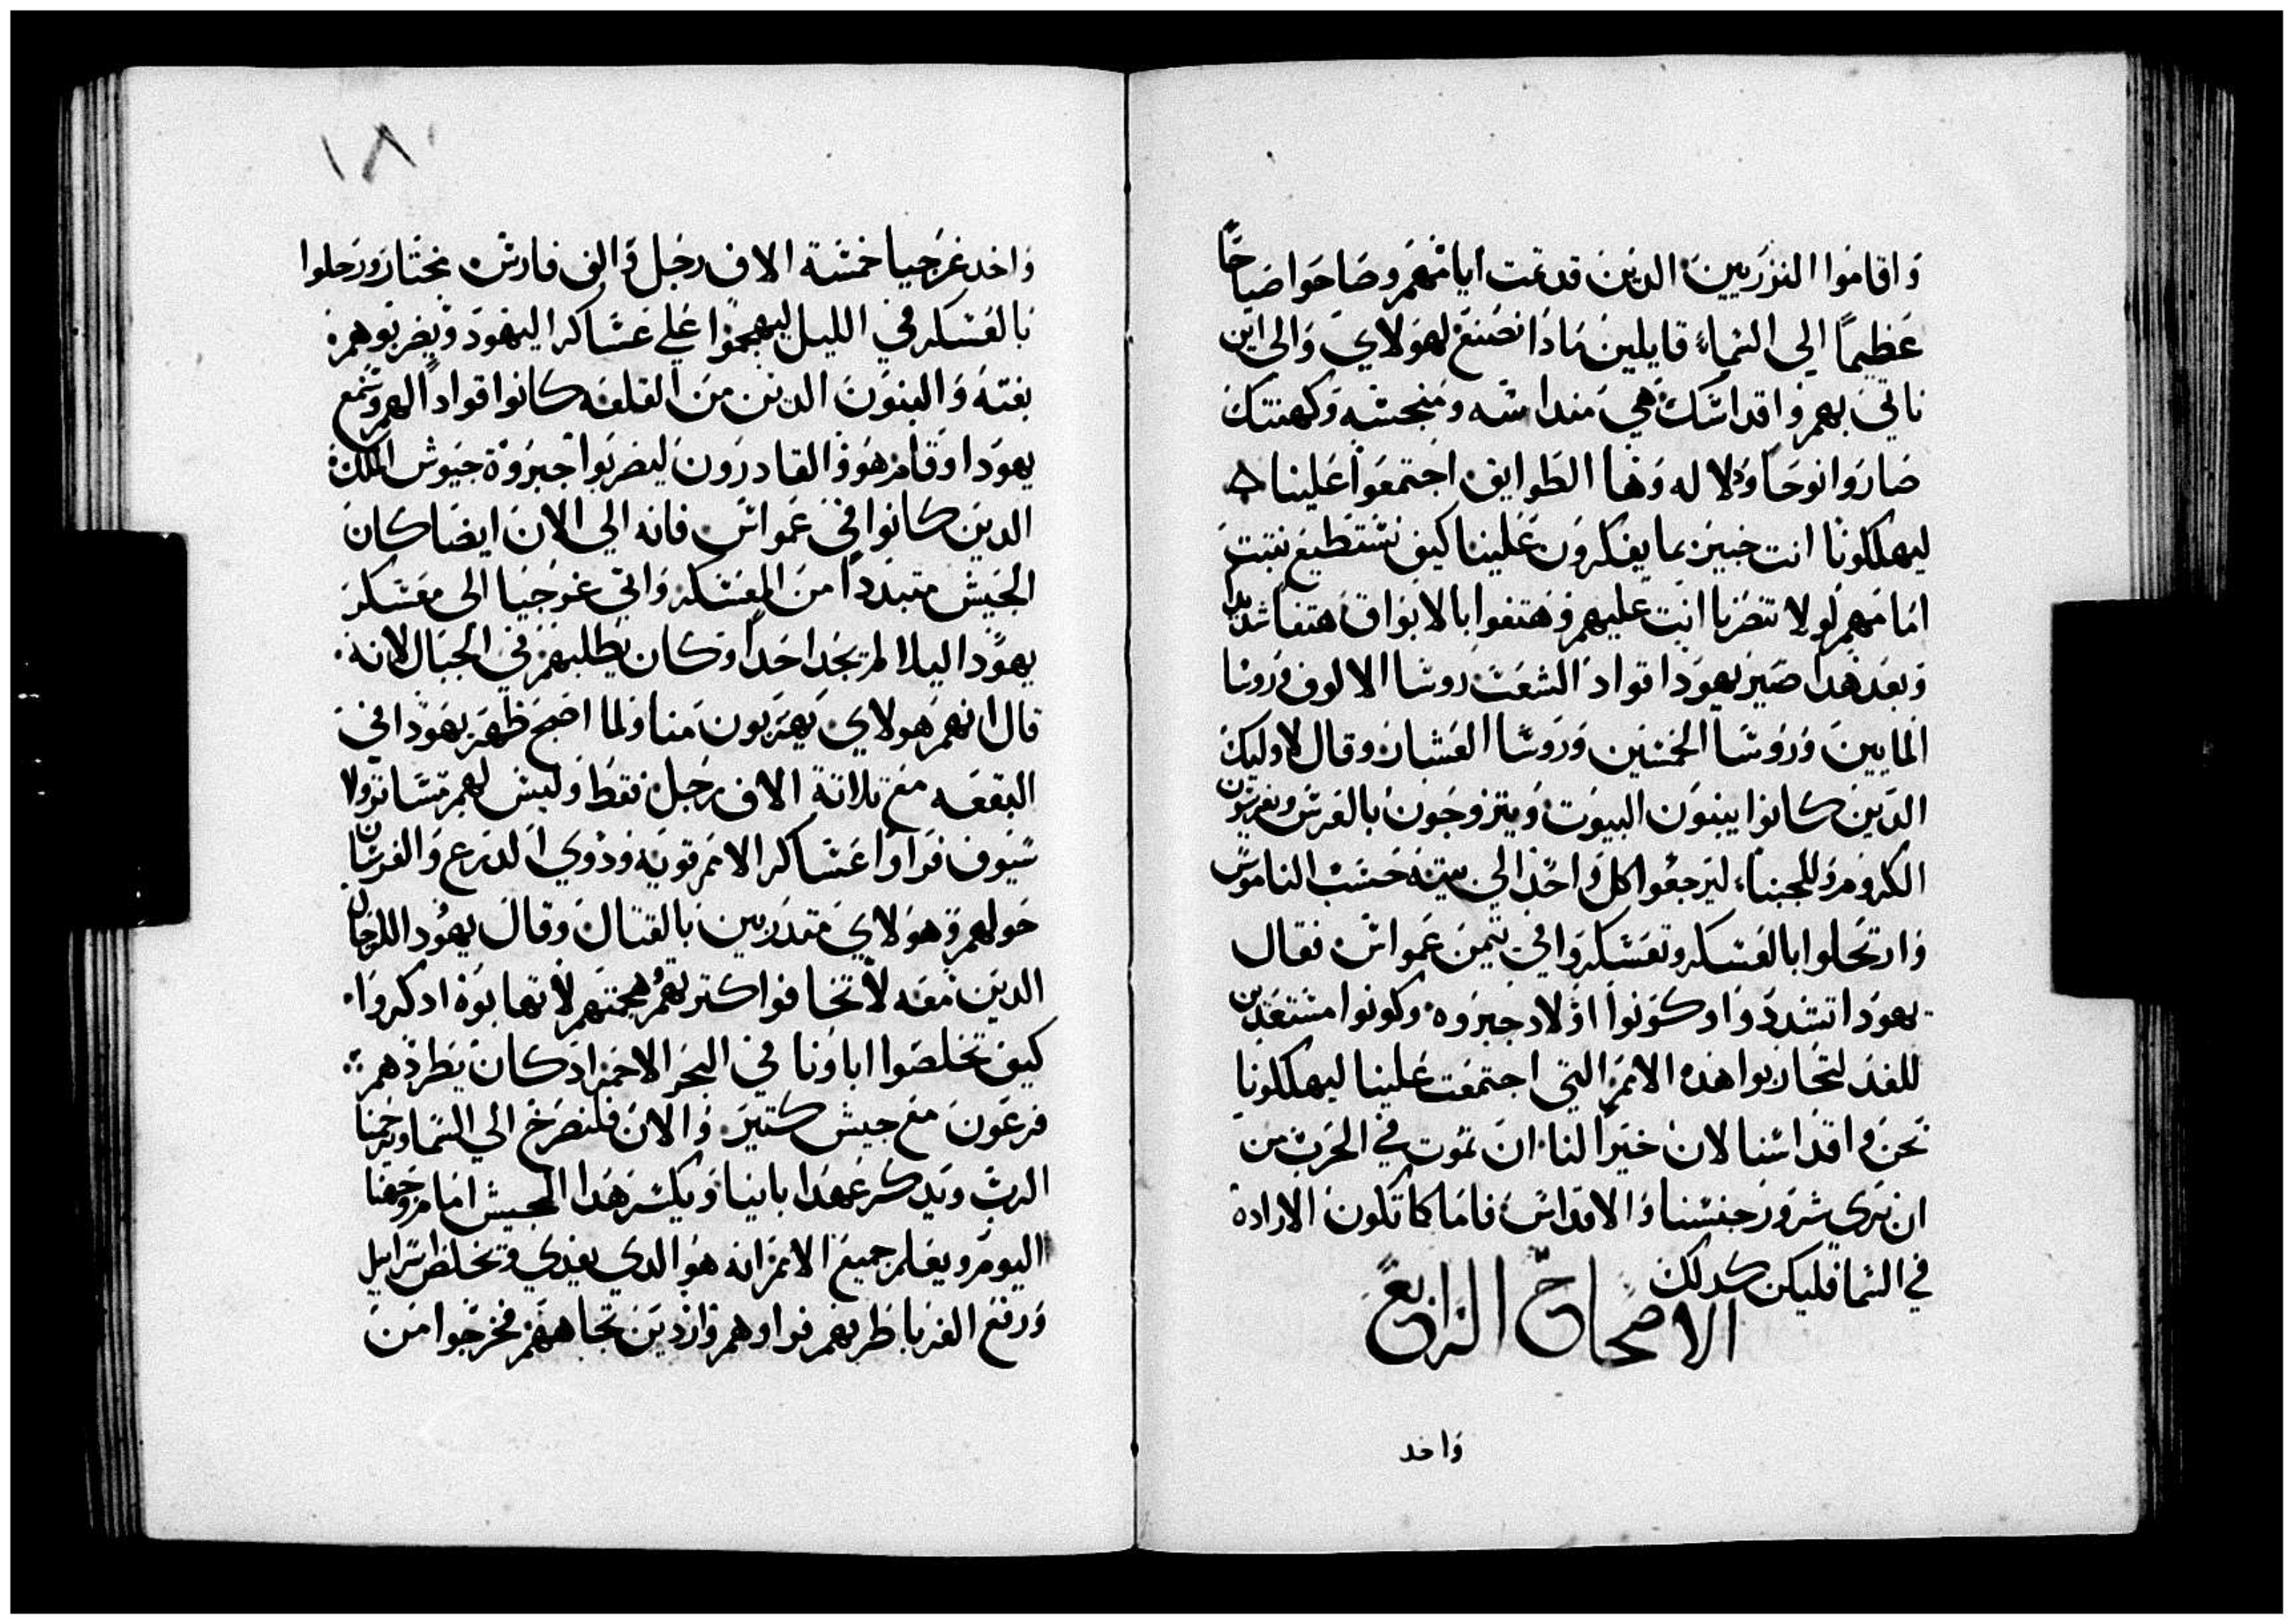 واقاموا النزريين الدين قد تمت ايامهم وصاحوا صياحًا
عظيمًا الي السماء قايلين مادا نصنع لهولاي والى اين
ناتي بهم واقداسك هي منداسه ومنجسه وكهنتك
صاروا نوحا ودلاله وها الطوايف اجتمعوا علينا
ليهلكونا انت خبير بما يفكرون علينا كيف نستطيع نتبت
امامهم لولا تنصرنا انت عليهم وهتفوا بالابواق هتفا شديدا
وبعد هدا صير يهودا قواد الشعب روسا الالوف وروسا
المايين وروسا الخمسين وروسا العشار وقال لاوليك
الدين كانوا يبنون البيوت ويتزوجون بالعرس ويغرسون
الكروم وللجبنا، ليرجعوا كل واحد الي بيته حسب الناموس
وارتحلوا بالعسكر وتعسكروا في تيمن عمواس فقال
يهودا تشددوا وكونوا اولاد جبروه وكونوا مستعدين
للغد لتحاربوا هده الامم التي اجتمعت علينا ليهلكونا
نحن واقداسنا لان خيرا لنا ان نموت في الحرب من
ان نري شرور جنسنا والاقداس فاما كما تكون الاراده
في السما فليكن كدلك
الاصحاح الرابع
واخد
١٨٠
واخد غرجيا خمسة الاف رجل والف فارس مختار ورحلوا
بالعسكر في الليل ليهجموا علي عساكر اليهود ويضربوهم
بغته والبنون الدين من القلعه كانوا قوادًا لهم وسمع
يهودا وقام هو والقادرون ليضربوا جبروة جيوش الملك
الدين كانوا في عمواس فانه الي الان ايضا كان
الجيش متبددا من المعسكر واتي غرجيا الى معسكر
يهودا ليلا لم يجد احدا وكان يطلبهم في الجبال لانه
قال انهم هولاي يهربون منا ولما اصبح ظهر يهودا في
البقعه مع تلاتة الاف رجل فقط وليس لهم تساتر ولا
سيوف فراوا عساكر الامم قويه ودوي الدرع والفرسان
حولهم وهولاي متدربين بالقتال وقال يهودا للرجال
الدين معه لا تخافوا كترتهم وهجمتهم لا تهابوه ادكروا
كيف تخلصوا اباونا في البحر الاحمر اد كان يطردهم
فرعون مع جيش كتير والان فلنصرخ الي السما ويرحمنا
الرب ويدكر عهد ابايـنا ويكسر هدا الجيش امام وجهنا
اليوم ويعلم جميع الامم انه هو الدي يفدي ويخلص اسراييل
ورفع الغربا طرفهم فراوهم واردين تجاههم فخرجوا من